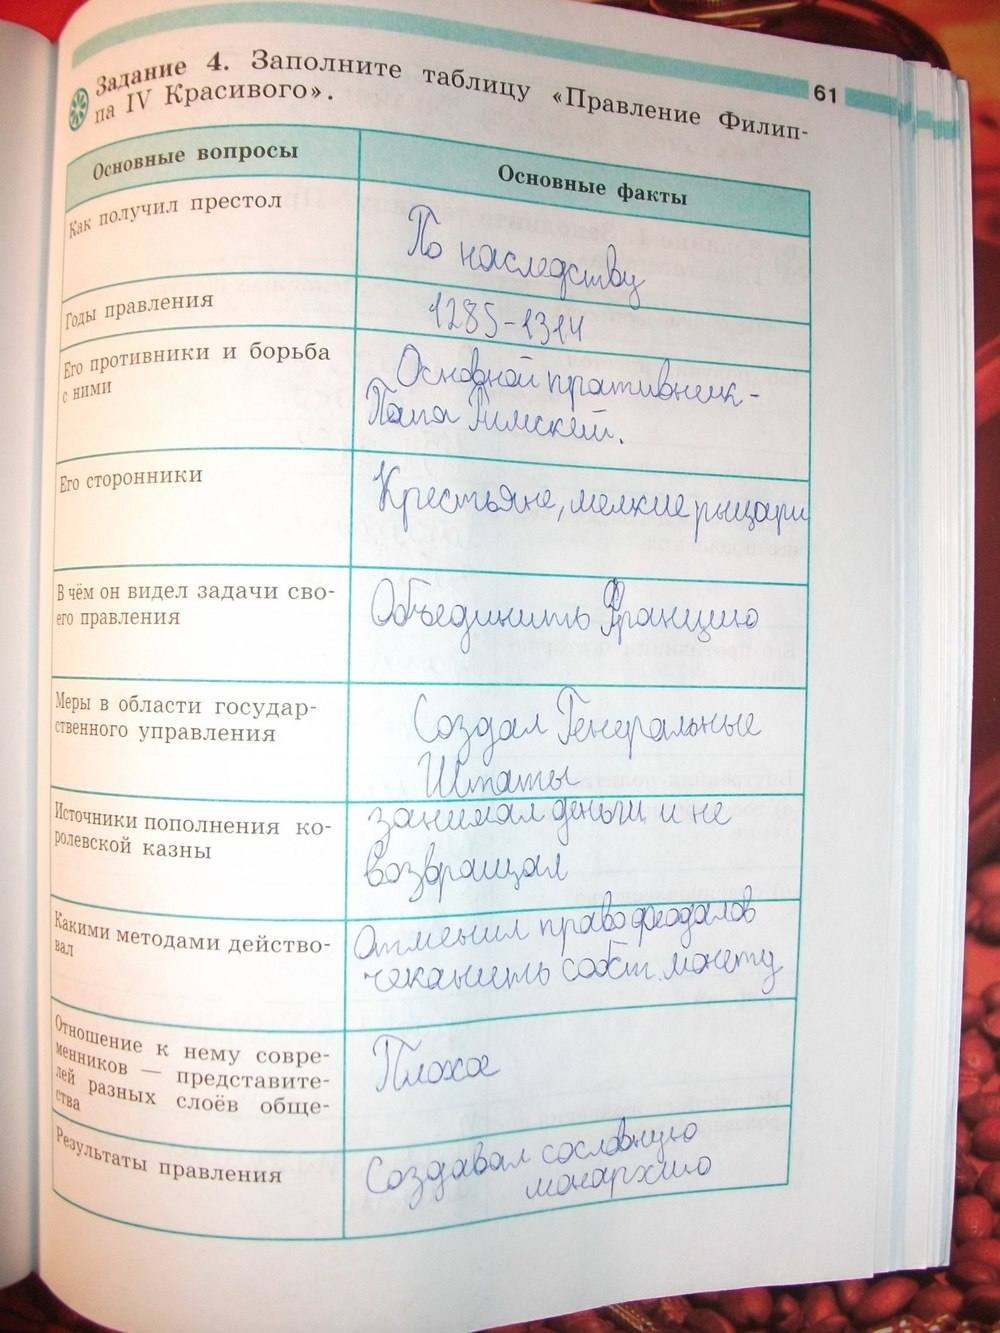 61
Задание 4. Заполните таблицу «Правление Филип-
па IV Красивого».
Основные вопросы
Основные факты
Как получил престол
По наследству
Годы правления
1285-1314
Его противники и борьба
с ними
Основной пративник -
Папа Римский.
Его сторонники
Крестьяне, мелкие рыцари
В чём он видел задачи сво-
его правления
Объединить Францию
Меры в области государ-
ственного управления
Создал Генеральные
Штаты
Источники пополнения ко-
ролевской казны
занимал деньги и не
возвращал
Какими методами действо-
вал
Отменил право феодалов
чеканить собст. монету
Отношение к нему совре-
менников — представите-
лей разных слоёв обще-
ства
Плохое
Результаты правления
Создавал сословную
монархию